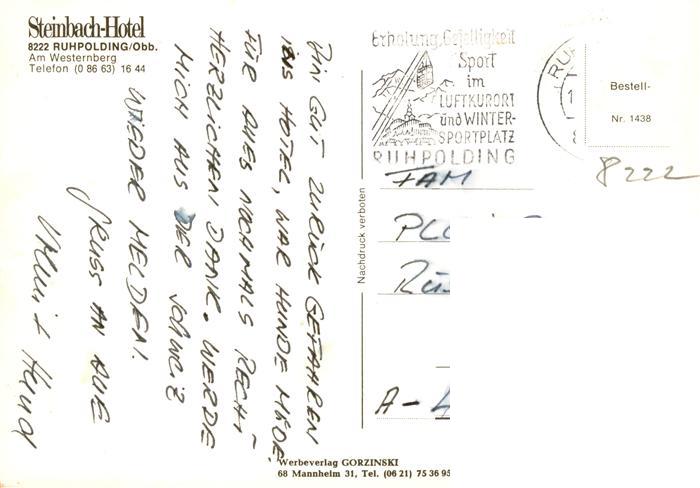 Steinbach-Hotel
8222 RUHPOLDING/Obb.
Am Westernberg
Telefon (0 86 63) 16 44
BIN GUT ZURÜCK GEFAHREN
INS HOTEL, WAR HUNDE MÜDE.
FÜR ALLES NOCHMALS RECHT
HERZLICHEN DANK. WERDE
MICH AUS DER SCHWEIZ
WIEDER MELDEN.
GRUSS AN ALLE
Erholung, Geselligkeit
Sport
im
LUFTKURORT
und WINTER-
SPORTPLATZ
RUHPOLDING
RU
Bestell-
Nr. 1438
8222
FAM
A-
Nachdruck verboten
Werbeverlag GORZINSKI
68 Mannheim 31, Tel. (06 21) 75 36 95